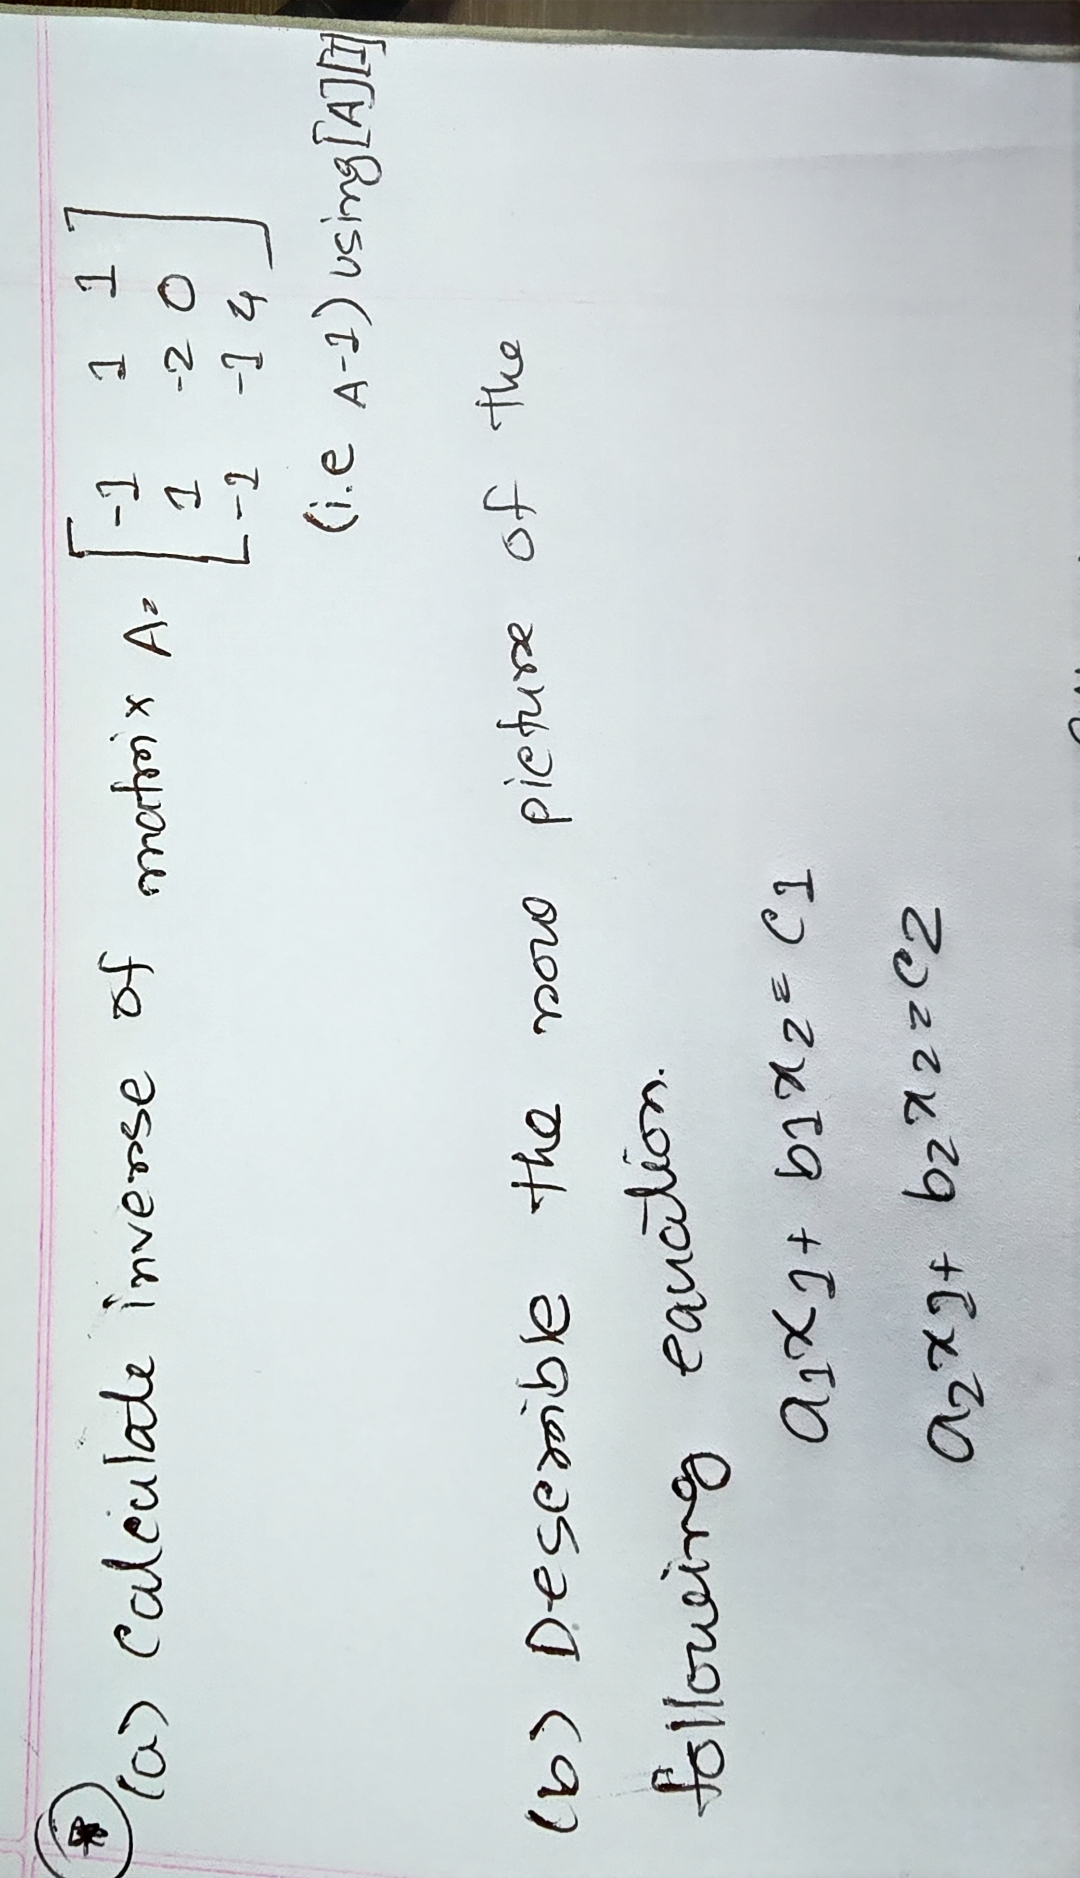 (a) Calculate inverse of matrix A=
[-1 1 1
1 -2 0
-1 -1 4]
(i.e A-1) using [A][I]
(b) Describle the row picture of the
following equation.
a1x1+ b1x2= C1
a2x1+ b2x2=C2